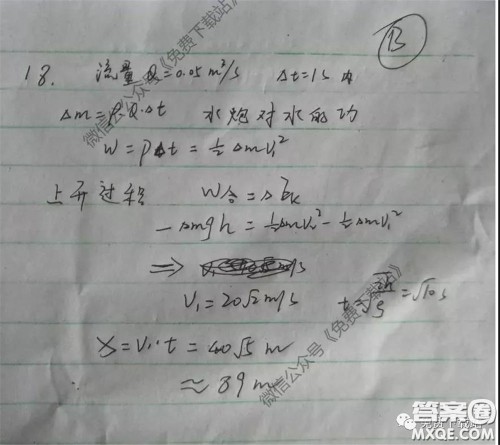 B
18. 流量Q=0.05m³/s Δt=1s内
Δm=ρQ·Δt 水炮对水的功
W=PΔt=½Δmv₁²
上升过程 W合=ΔEk
-Δmgh=½Δmv₂²-½Δmv₁²
⇒
V₁=20√2m/s t=√(2h/g)=√10 s
X=V₁·t=40√5 m
≈89m
微信公众号《免费下载站》
微信公众号《免费下载站》
免费下载站
答案圈
MXQE.COM